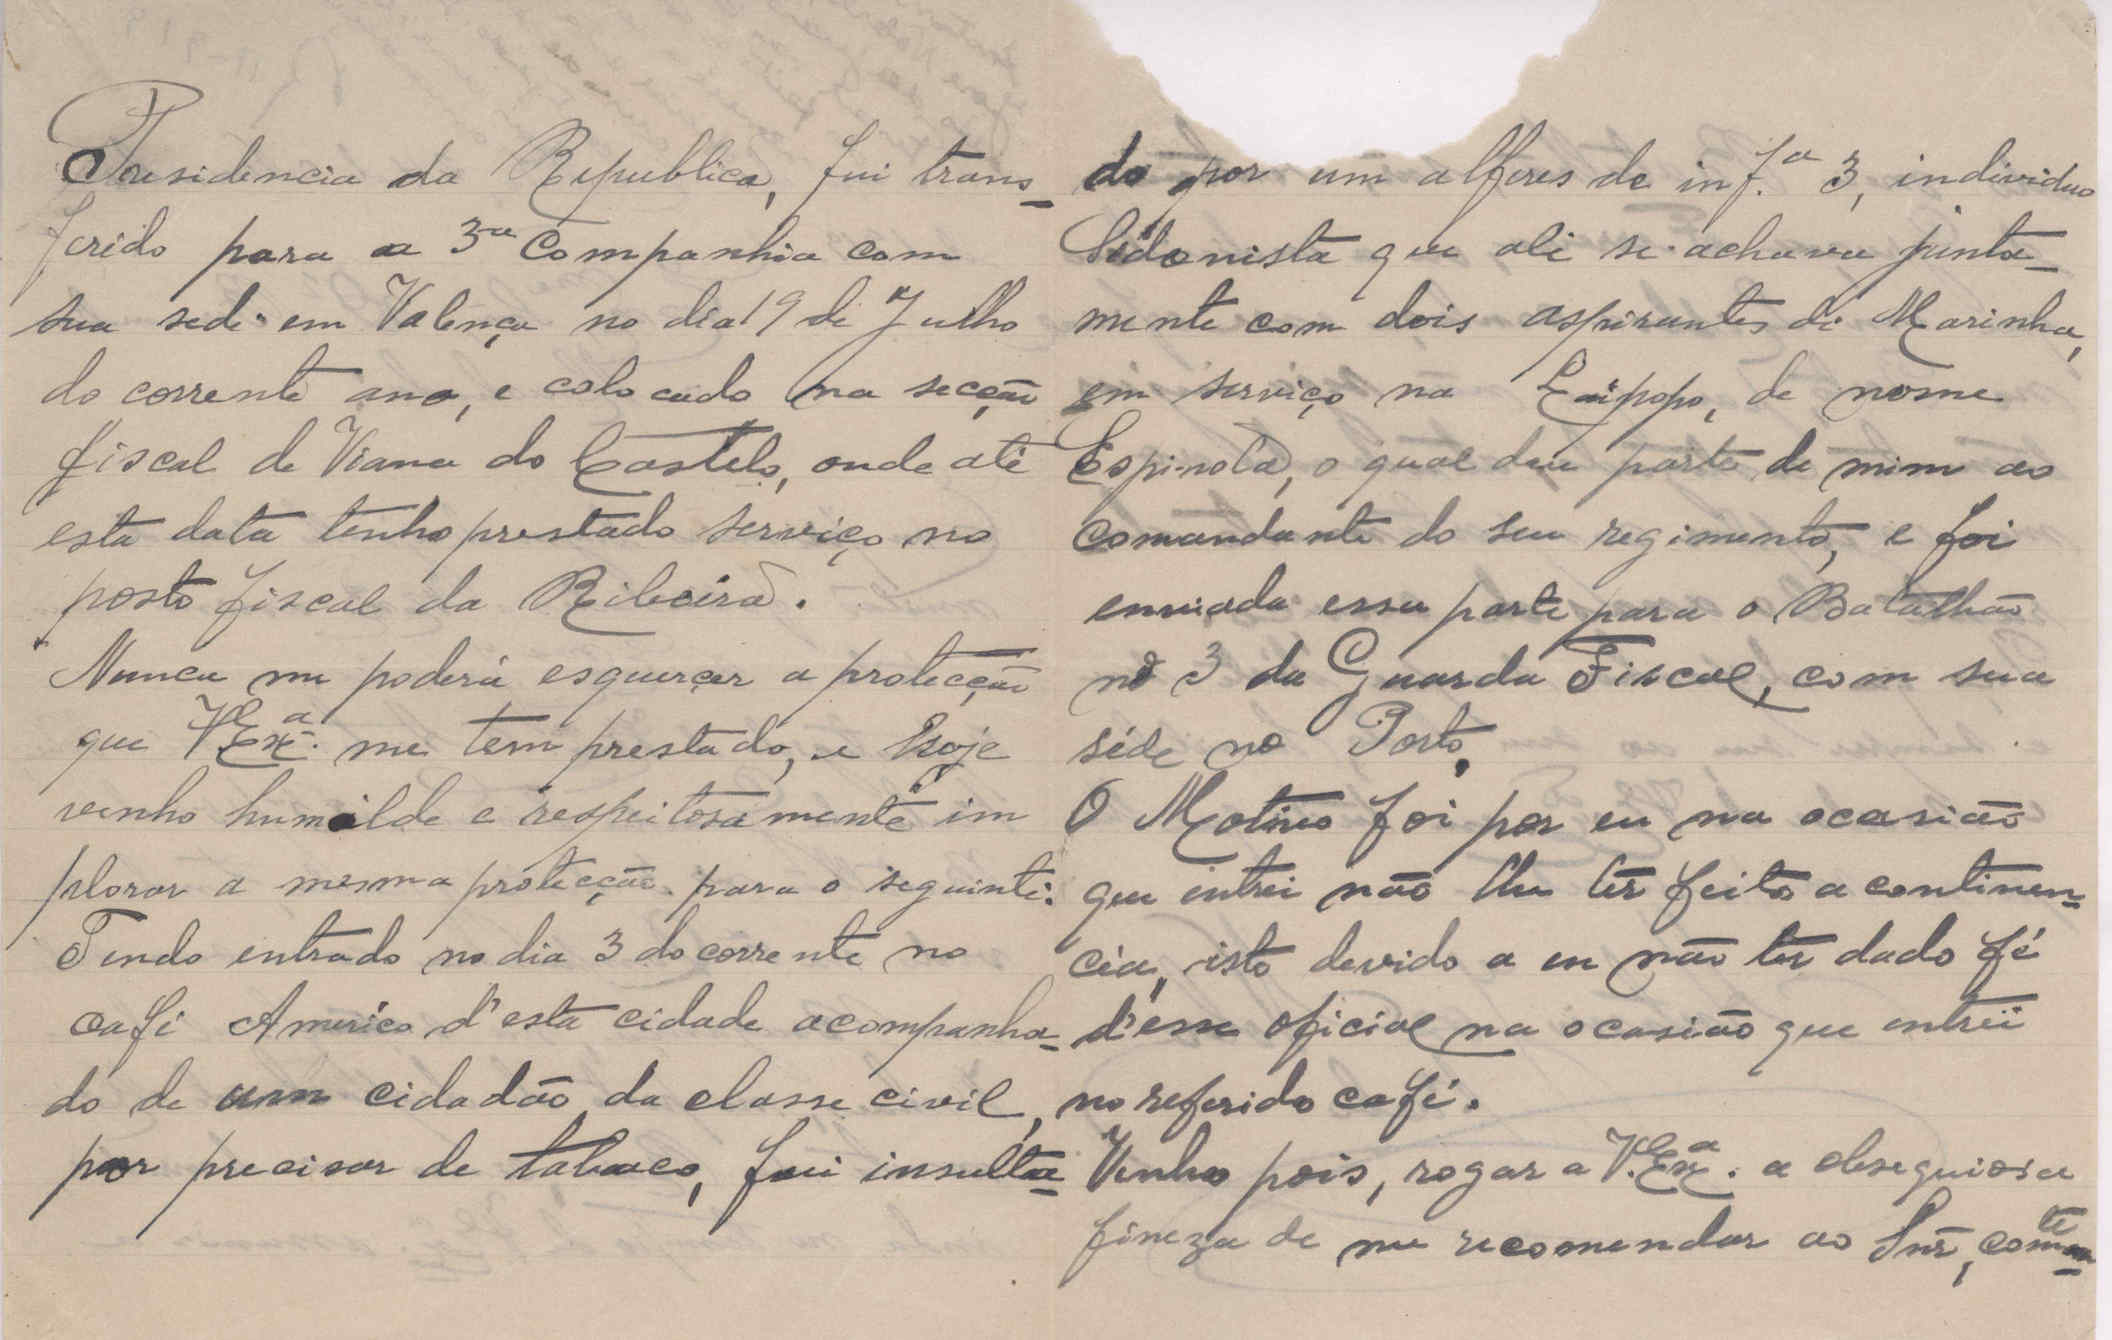 Presidencia da Republica, fui trans-
ferido para a 3ª Companhia com
sua sede em Valença no dia 19 de Julho
do corrente ano, e colocado na secção
fiscal de Viana do Castelo, onde até
esta data tenho prestado serviço no
posto fiscal da Ribeira.
Nunca me poderá esquecer a protecção
que V. Exª. me tem prestado, e hoje
venho humilde e respeitosamente im
plorar a mesma protecção para o seguinte:
Tendo entrado no dia 3 do corrente no
café Americo d'esta cidade acompanha-
do de um cidadão da classe civil,
por precisar de tabaco, fui insulta-
do por um alferes de inf.ª 3, individuo
Sidonista que ali se achava junta-
mente com dois aspirantes de Marinha,
em serviço na de nome
Espinola, o qual deu parte de mim ao
comandante do seu regimento, e foi
enviada essa parte para o Batalhão
nº 3 da Guarda Fiscal, com sua
séde no Porto.
O Motivo foi por eu na ocasião
que entrei não lhe ter feito a continen-
cia, isto devido a eu não ter dado fé
d'esse oficial na ocasião que entrei
no referido café.
Venho pois, rogar a V. Exª. a obsequiosa
fineza de me recomendar ao Snr, com.te